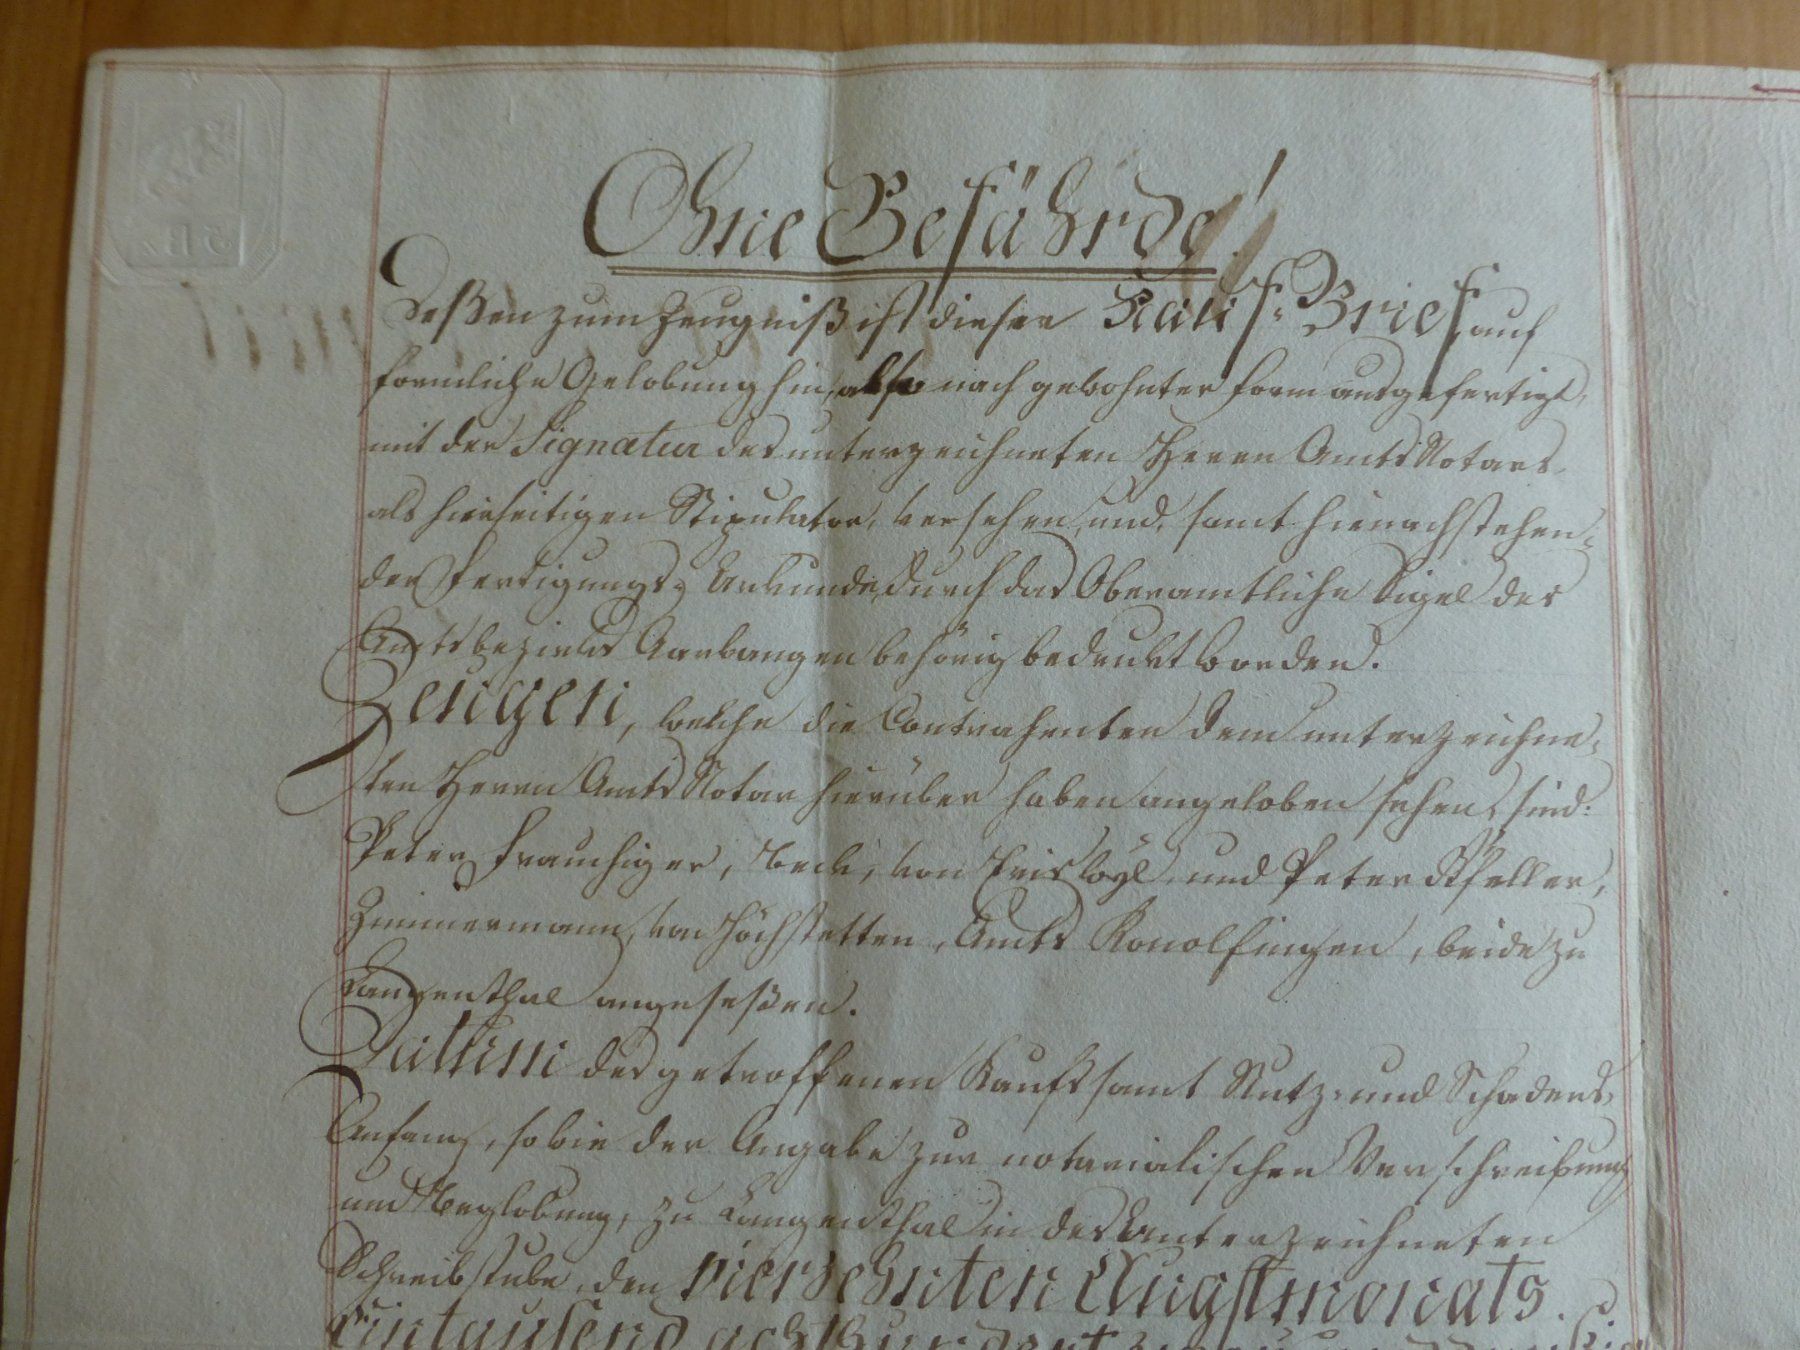 Ohne Gefährde!
Deßen zum Zeugniß ist dieser Kauf-Brief, auf
förmliche Gelobung hin, also nach gewohnter Form ausgefertigt,
mit der Signatur des unterzeichneten Herrn Amts Notars
als hierseitigen Stipulator, versehen, und, samt hienachstehen-
der Fertigungs-Urkunde, durch das Oberamtliche Sigel des
Amtsbezirks Aarwangen behörig bedrukt worden.
Zeugen, welche die Contrahenten dem unterzeichne-
ten Herrn Amts Notar hierüber haben angeloben sehen, sind:
Peter Frauchiger, Beck, von Eriswyl, und Peter Pfeller,
Zimmermann, von Höchstetten, Amts Konolfingen, beide zu
Langenthal angeseßen.
Datum des getroffenen Kaufs samt Nutz- und Schadens-
Anfang, sowie der Angabe zur notarialischen Verschreibung
und Beglobung, zu Langenthal in des Unterzeichneten
Schreibstube, den vierzehnten Augstmonats.
Eintausend achthundert
5 Bz